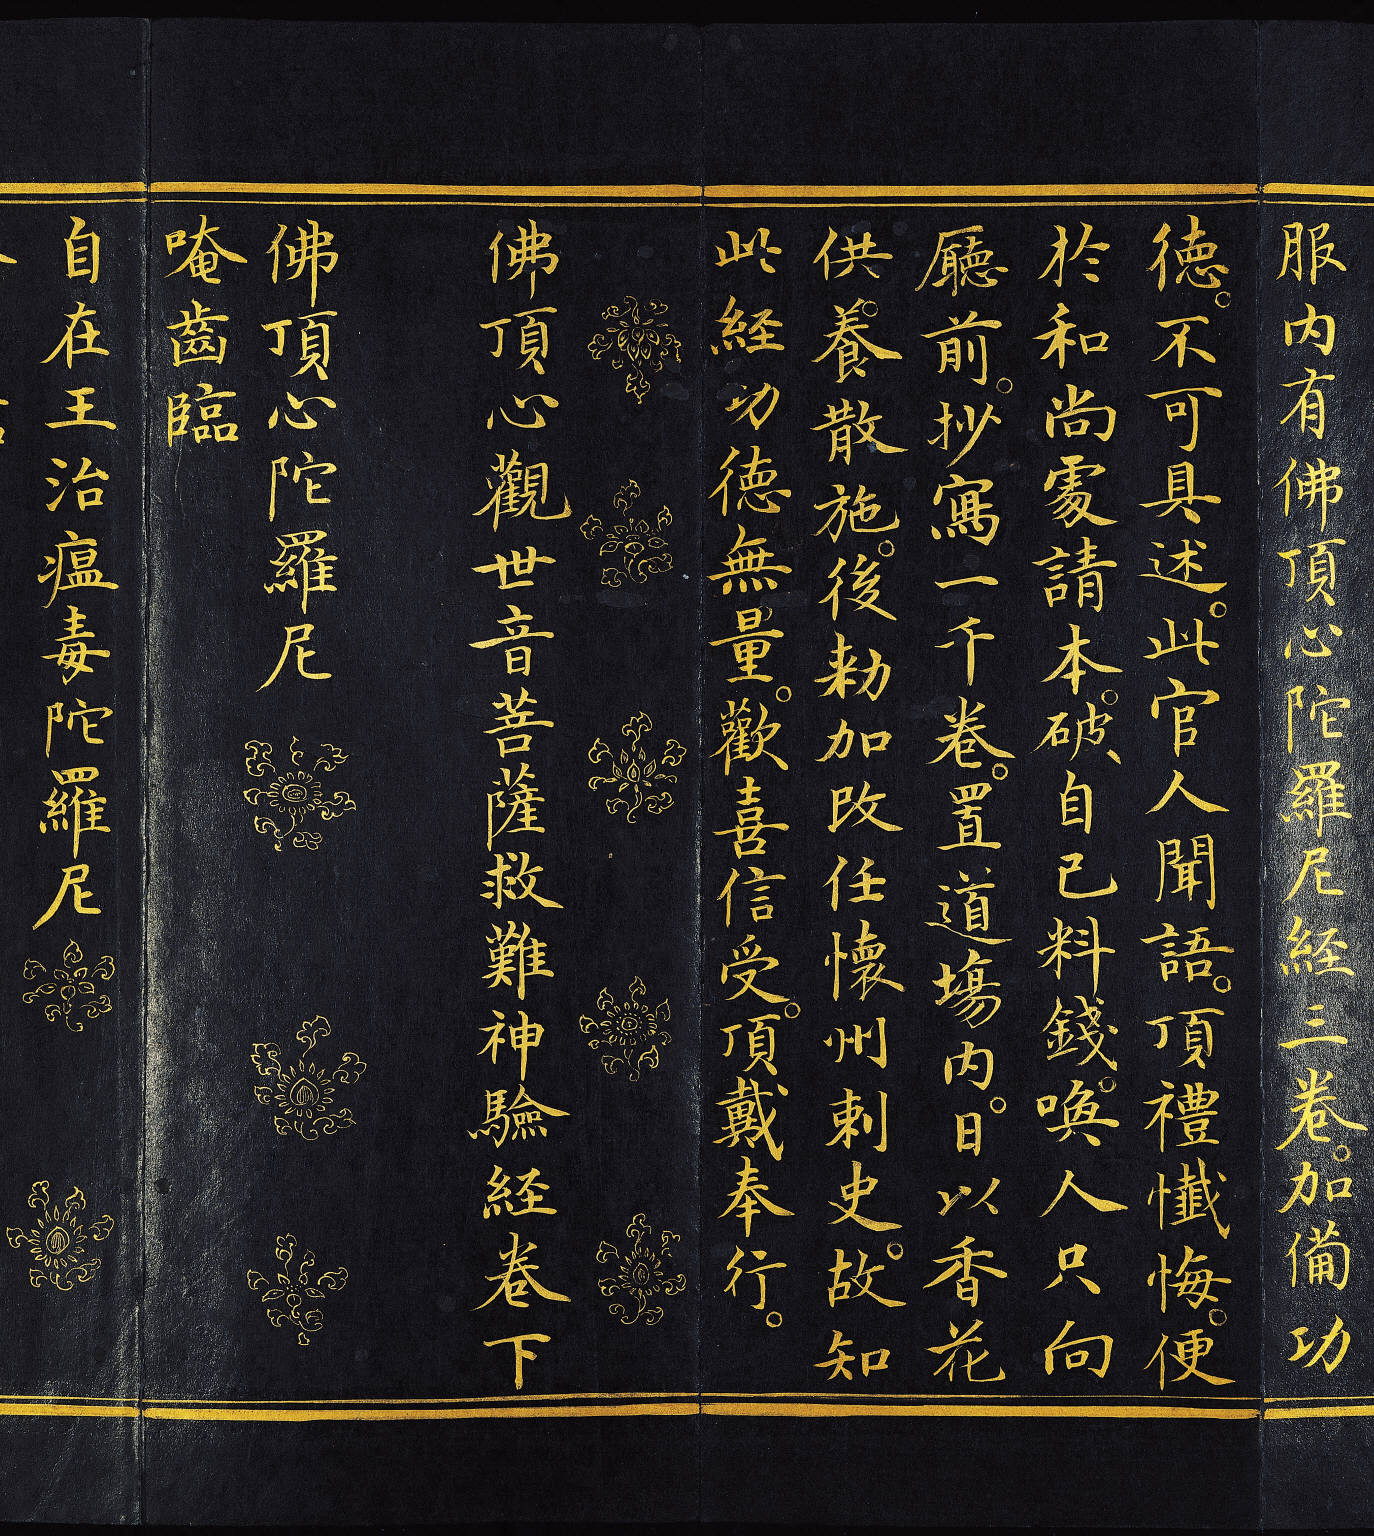 服内有佛頂心陀羅尼経三卷。加備功
德。不可具述。此官人聞語。頂禮懺悔。便
於和尚䖏請本。破自己料錢。喚人只向
廳前。抄寫一千卷。置道場内。日以香花
供。養散施。後勅加改任懷州刺史。故知
此経功德無量。歡喜信受。頂戴奉行。
佛頂心觀世音菩薩救難神驗経卷下
佛頂心陀羅尼
唵齒臨
自在王治瘟毒陀羅尼